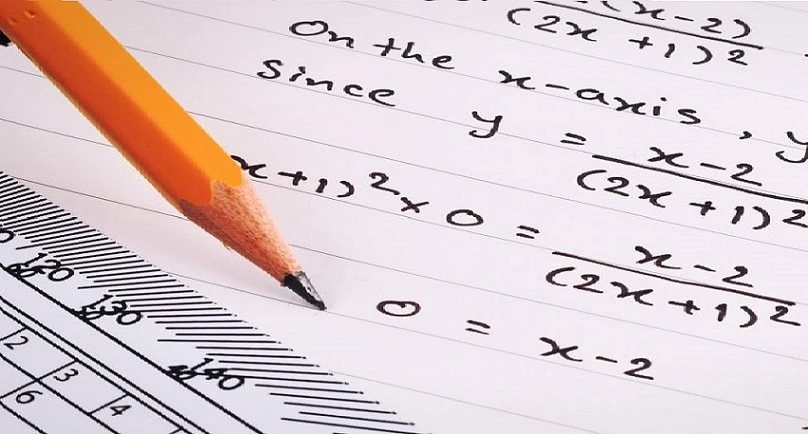 (x-2)
(2x +1)2
On the x-axis, y
Since y = x-2
(2x +1)2
x+1)2 x 0 = x-2
(2x+1)2
0 = x-2
120 130 140
2 3 4
6